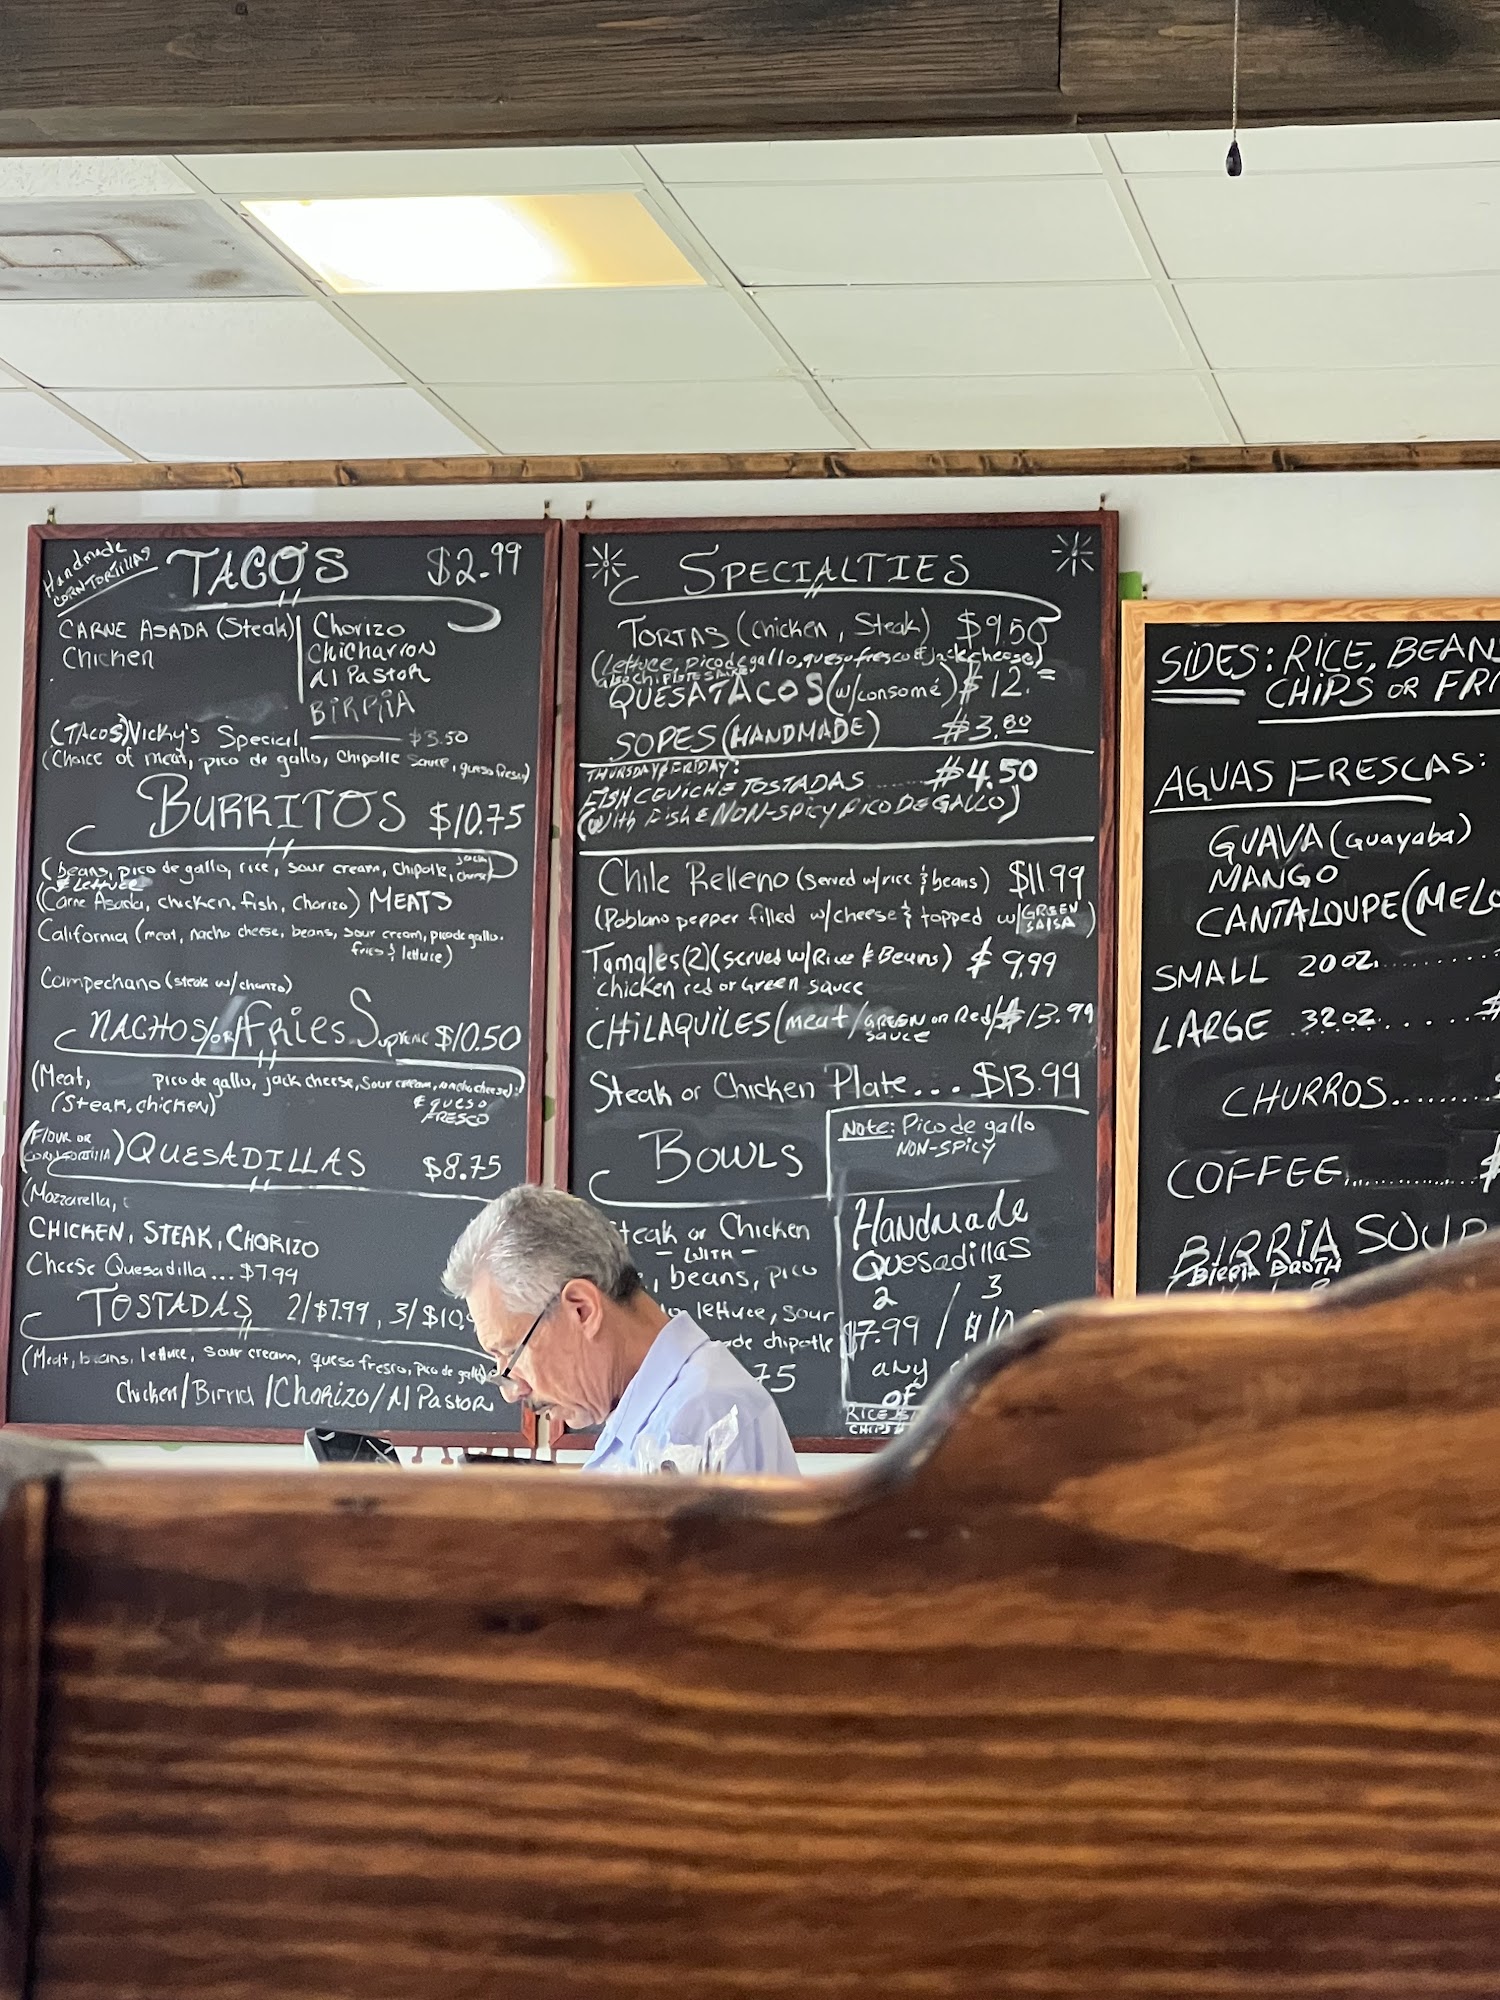 Handmade
CORN TORTILLAS
TACOS $2.99
CARNE ASADA (Steak)
Chicken
Chorizo
Chicharron
Al Pastor
BIRRIA
(TACOS) Vicky's Special $3.50
(Choice of meat, pico de gallo, chipotle sauce, queso fresco)
BURRITOS $10.75
(beans, pico de gallo, rice, sour cream, chipotle, jack cheese)
& lettuce
(Carne Asada, chicken, fish, Chorizo) MEATS
California (meat, nacho cheese, beans, sour cream, pico de gallo,
fries & lettuce)
Campechano (steak w/chorizo)
NACHOS/OR/Fries Supreme $10.50
(Meat, pico de gallo, jack cheese, sour cream, nacho cheese)
(Steak, chicken) & queso
FRESCO
(FLOUR OR
CORN TORTILLA) QUESADILLAS $8.75
(Mozzarella,
CHICKEN, STEAK, CHORIZO
Cheese Quesadilla... $7.99
TOSTADAS 2/$7.99, 3/$10.
(Meat, beans, lettuce, sour cream, queso fresco, pico de gallo)
Chicken/Birria/Chorizo/Al Pastor
SPECIALTIES
TORTAS (Chicken, Steak) $9.50
(Lettuce, pico de gallo, queso fresco & jack cheese)
QUESATACOS (w/consomé) $12.
SOPES (HANDMADE) $3.80
THURSDAY & FRIDAY:
FISH CEVICHE TOSTADAS ........ $4.50
(With Fish & NON-SPICY PICO DE GALLO)
Chile Relleno (served w/rice & beans) $11.99
(Poblano pepper filled w/cheese & topped w/GREEN SALSA)
Tamales (2) (served w/Rice & Beans) $9.99
chicken red or Green sauce
CHILAQUILES (meat/GREEN OR Red $13.99
SAUCE
Steak or Chicken Plate... $13.99
BOWLS
teak or Chicken
- WITH -
, beans, pico
lettuce, sour
ade chipotle
75
Note: Pico de gallo
NON-SPICY
Handmade
Quesadillas
2 / 3
$7.99 / $10
any
OF
RICE
CHIPS
SIDES: RICE, BEAN
CHIPS OR FRI
AGUAS FRESCAS:
GUAVA (Guayaba)
MANGO
CANTALOUPE (MELO
SMALL 20oz..........
LARGE 32oz....... $
CHURROS........
COFFEE............ $
BIRRIA SOUP
BIRRIA BROTH